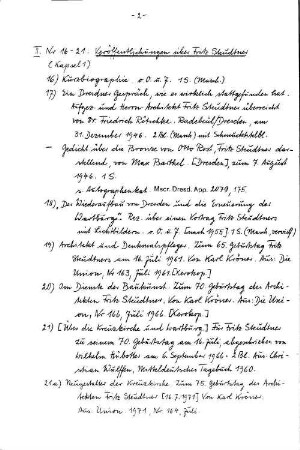 - 2 -
I. Nr 16-21: Veröffentlichungen über Fritz Steudtner
(Kapsel 1)
16) Kurzbiographie o.O.u.J. 1 S. (Masch.)
17) Ein Dresdner Gespräch, wie es wirklich stattgefunden hat.
und Herrn Architekt Fritz Steudtner überreicht
von Dr. Friedrich Radebeul/Dresden, am
31. Dezember 1946. 2 Bl. (Masch) mit
- Gedicht über die Bronze von Otto Rost, Fritz Steudtner dar-
stellend, von Max Barthel. [Dresden], zum 7. August
1946. 1 S.
s. Autographenkat. Mscr. Dresd. App. 2079, 175
18) Der Wiederaufbau von Dresden und die Erneuerung der
Wartburg. Rez. über einen Vortrag Fritz Steudtners
mit Lichtbildern o.O.u.J. [nach 1955] 1 S. (Masch., vervielf)
19) Architekt und Denkmalpfleger. Zum 65. Geburtstag Fritz
Steudtners am 16. Juli 1961. Von Karl Kröner. Aus: Die
Union, Nr 163, Juli 1961. [Xerokop.]
20) Im Dienste der Baukunst. Zum 70. Geburtstag des Archi-
tekten Fritz Steudtner. Von Karl Kröner. Aus: Die Uni-
on, Nr 166, Juli 1966. [Xerokop.]
21) [Über die Kreuzkirche und Wartburg.] Für Fritz Steudtner
zu seinem 70. Geburtstag am 16. Juli, abgeschrieben von
Wilhelm am 6. September 1966. 2 Bl. Aus: Chri-
stian Mitteldeutsches Tagebuch 1960.
21a) Neugestalter der Kreuzkirche. Zum 75. Geburtstag des Archi-
tekten Fritz Steudtner [16.7.1971] Von Karl Kröner.
Aus: Union 1971, Nr 164, Juli.